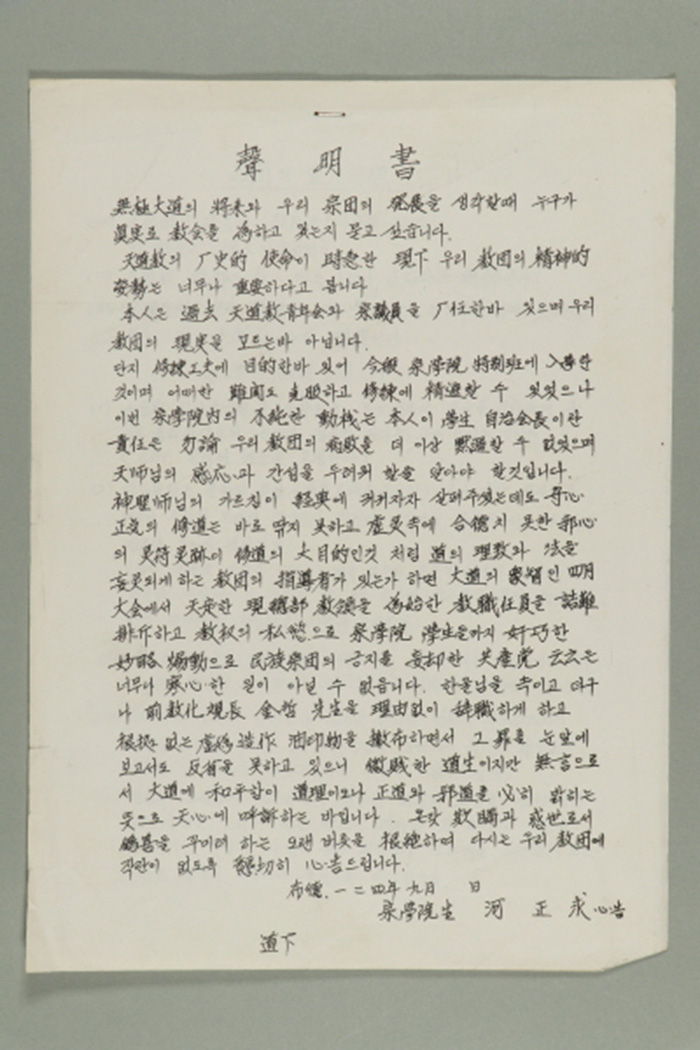 聲明書
無極大道의 將来와 우리 宗団의 発展을 생각할때 누구가
眞実로 教会를 爲하고 있는지 묻고 싶습니다.
天道教의 厂史的 使命이 時急한 現下 우리 教団의 精神的
姿勢는 너무나 重要하다고 봅니다
本人은 過去 天道教青年会와 宗議員을 厂任한바 있으며 우리
教団의 現実을 모르는바 아닙니다.
단지 修棟工夫에 目的한바 있어 今般 宗學院 特別班에 入學한
것이며 어떠한 難関도 克服하고 修棟에 精進할 수 있었으나
이번 宗學院内의 不純한 動机는 本人이 學生 自治会長이란
責任은 勿論 우리 教団의 病敗를 더 이상 黙過할 수 없었으며
天師님의 感応과 간섭을 두려워 할줄 알아야 할것입니다.
神聖師님의 가르침이 経典에 켜켜자자 살펴주셨는데도 守心
正気의 修道는 바로 딲지 못하고 虛灵속에 合德치 못한 邪心
의 灵符灵跡이 修道의 大目的인것 처럼 道의 理教와 法을
妄灵되게 하는 教団의 指導者가 있는가 하면 大道의 衆智인 四月
大会에서 天定한 現機部 教領을 爲始한 教職任員을 詰難
排斥하고 教权의 私慾으로 宗學院 學生들까지 奸巧한
妙略 煽動으로 民族宗団의 긍지를 妄却한 共産党 云云은
너무나 寒心한 일이 아닐 수 없읍니다. 한울님을 속이고 더구
나 前教化観長 金哲 先生을 理由없이 辞職하게 하고
根拠 없는 虛偽造作 油印物을 撒布하면서 그 罪를 눈앞에
보고서도 反省을 못하고 있으니 微賎한 道生이지만 無言으로
서 大道에 和平함이 道理이오나 正道와 邪道를 必히 밝히는
뜻으로 天心에 呼訴하는 바입니다. 온갖 欺瞞과 惑世로서
偽善을 꾸미려 하는 오랜 버릇을 根絶하며 다시는 우리 教団에
작란이 없도록 懇切히 心告드립니다.
布德. 一二四年 九月 日
宗學院生 河 正 求 心告
道下